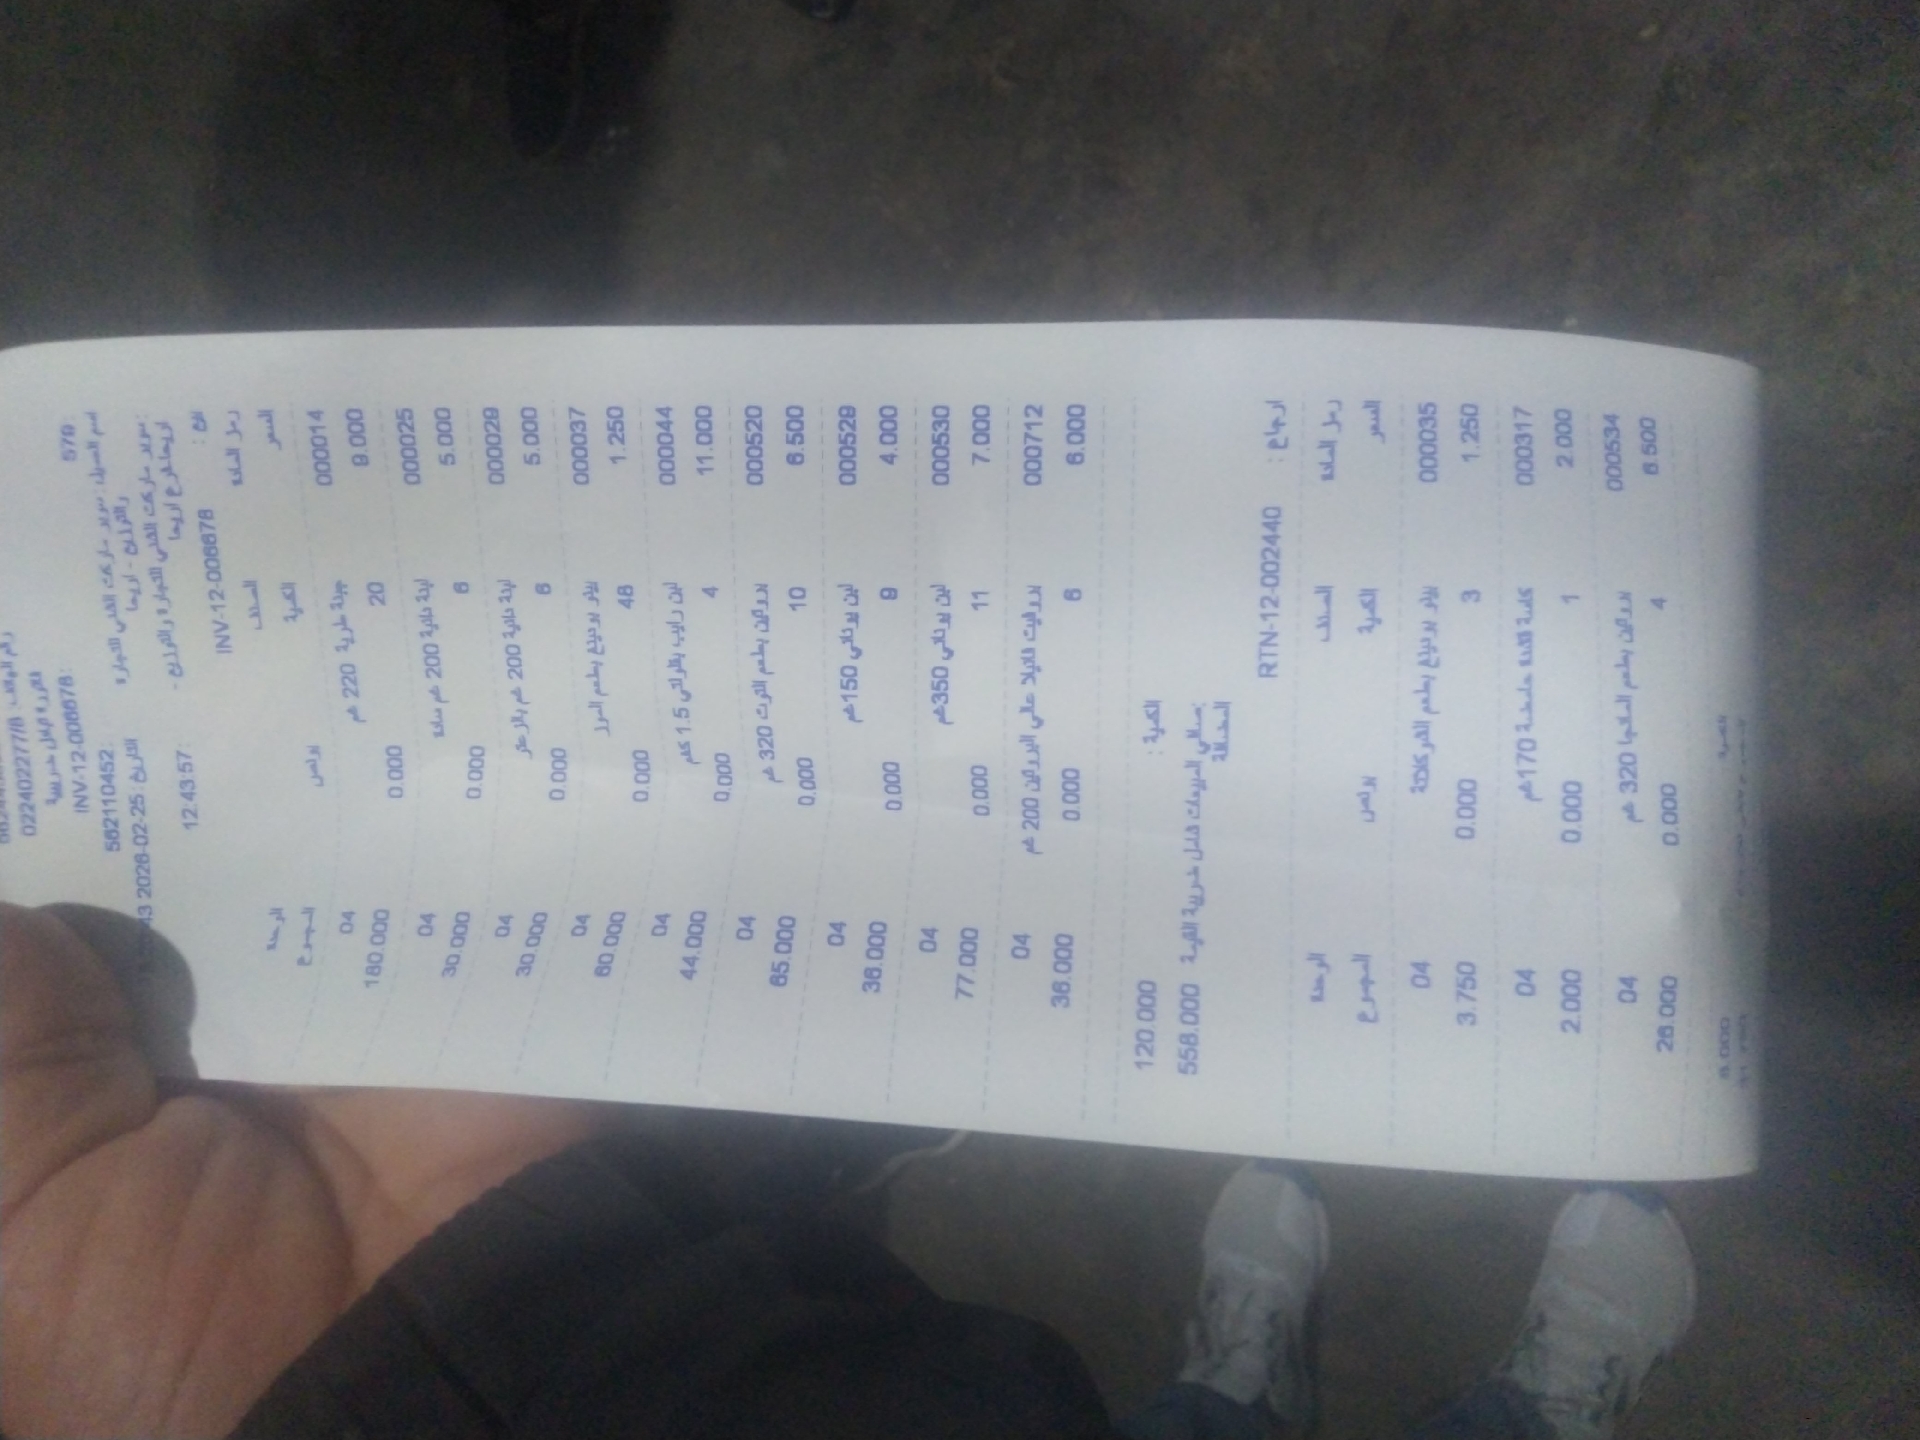 022402277/8
فاتورة شامل ضريبية
INV-12-006678:
562110452:
اسم العميل: سوبر ماركت الفتى للتجاره
والتوزيع - اريحا
التاريخ: 2026-02-25
سوبر ماركت الفتى للتجاره والتوزيع -
اريحا فرع اريحا
12:43:57
INV-12-006678 بيع :
رمز المادة الصنف الوحدة
السعر الكمية بونص المجموع
000014 جبنة طرية 220 غم 04
9.000 20 0.000 180.000
000025 لبنة دلالية 200 غم سادة 04
5.000 6 0.000 30.000
000029 لبنة دلالية 200 غم بالزعتر 04
5.000 6 0.000 30.000
000037 بودينغ بطعم الموز 04
1.250 48 0.000 60.000
000044 لبن رايب بقلولتي 1.5 كغم 04
11.000 4 0.000 44.000
000520 بروتين بطعم التوت 320 غم 04
6.500 10 0.000 65.000
000529 لبن يوناني 150غم 04
4.000 9 0.000 36.000
000530 لبن يوناني 350غم 04
7.000 11 0.000 77.000
000712 فانيلا عالي البروتين 200 غم 04
6.000 6 0.000 36.000
الكمية : 120.000
المبيعات شامل ضريبة القيمة 558.000
المضافة
RTN-12-002440 ارجاع :
رمز المادة الصنف الوحدة
السعر الكمية بونص المجموع
000035 بودينغ بطعم الشوكلاتة 04
1.250 3 0.000 3.750
000317 170غم 04
2.000 1 0.000 2.000
000534 بروتين بطعم المانجا 320 غم 04
6.500 4 0.000 26.000
الكمية 8.000